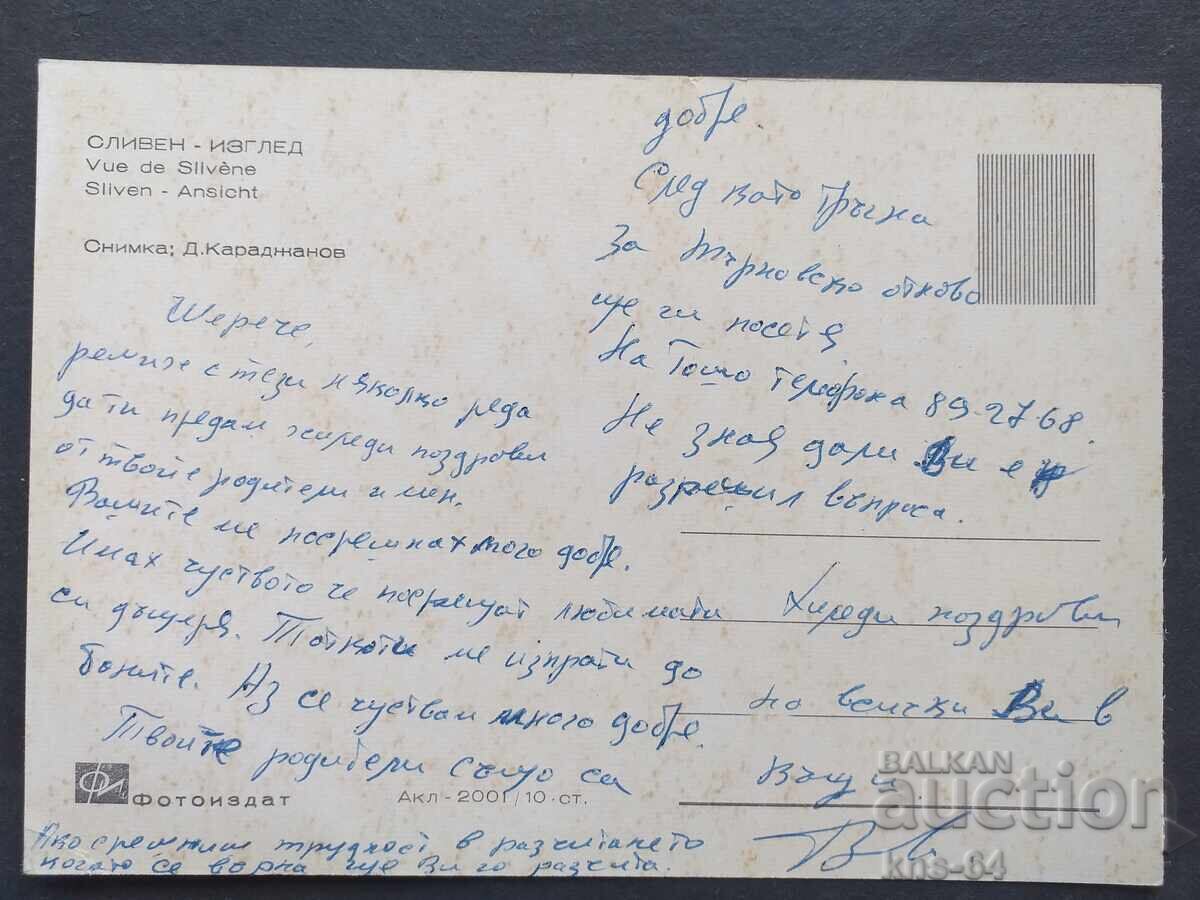 СЛИВЕН - ИЗГЛЕД
Vue de Slivène
Sliven - Ansicht
Снимка; Д.Караджанов
Шерече,
с тези няколко реда
да ти предам хиреди поздрови
от твойе родители и мен.
Вашите ме посремнах много добре.
Имах чуството че посрещат любимата
си дъщеря. Татко ти ме изпрати до
баните. Аз се чуствам много добре.
Твоите родители също са
добре.
След като тръгна
За Търновско отново
ще ги посетя.
На Тошо телефона 89-27-68.
Не зная дали Ви е
разрешил въпроса.
Хиреди поздрови
на всички Ви в
къщи.
Ако срещнеш трудност в разчитането
когато се върна ще Ви го разчита.
ФИ
Фотоиздат
Акл-2001/10-ст.
BALKAN
auction
kns-64